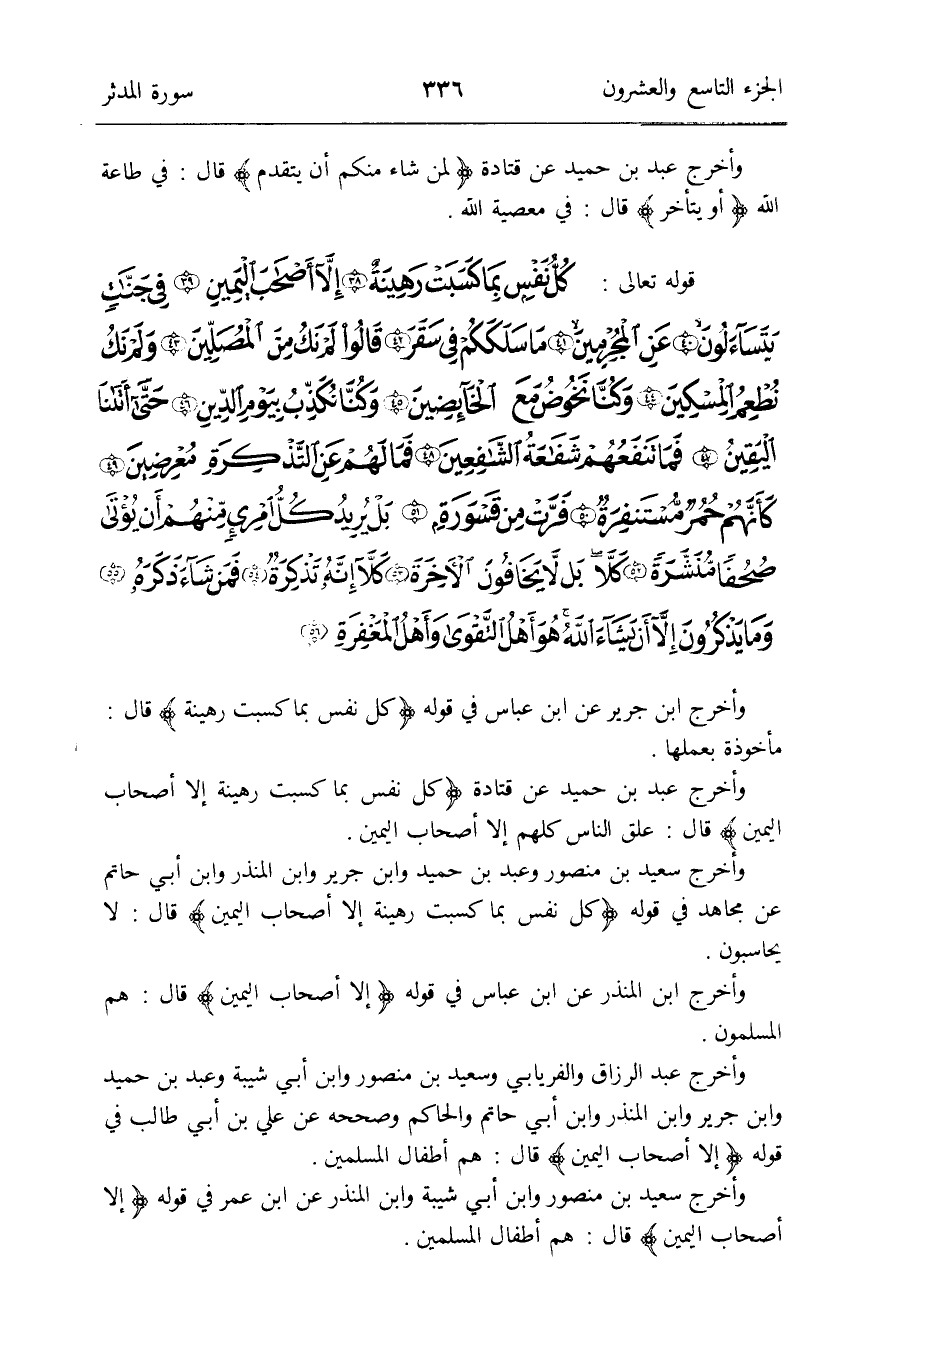 الجزء التاسع والعشرون ٣٣٦ سورة المدثر
وأخرج عبد بن حميد عن قتادة ﴿ لمن شاء منكم أن يتقدم ﴾ قال : في طاعة
الله ﴿ أو يتأخر ﴾ قال : في معصية الله .
قوله تعالى : كُلُّ نَفْسٍ بِمَا كَسَبَتْ رَهِينَةٌ ﴿٣٨﴾ إِلَّا أَصْحَٰبَ ٱلْيَمِينِ ﴿٣٩﴾ فِى جَنَّٰتٍ
يَتَسَآءَلُونَ ﴿٤٠﴾ عَنِ ٱلْمُجْرِمِينَ ﴿٤١﴾ مَا سَلَكَكُمْ فِى سَقَرَ ﴿٤٢﴾ قَالُوا۟ لَمْ نَكُ مِنَ ٱلْمُصَلِّينَ ﴿٤٣﴾ وَلَمْ نَكُ
نُطْعِمُ ٱلْمِسْكِينَ ﴿٤٤﴾ وَكُنَّا نَخُوضُ مَعَ ٱلْخَآئِضِينَ ﴿٤٥﴾ وَكُنَّا نُكَذِّبُ بِيَوْمِ ٱلدِّينِ ﴿٤٦﴾ حَتَّىٰٓ أَتَىٰنَا
ٱلْيَقِينُ ﴿٤٧﴾ فَمَا تَنفَعُهُمْ شَفَٰعَةُ ٱلشَّٰفِعِينَ ﴿٤٨﴾ فَمَا لَهُمْ عَنِ ٱلتَّذْكِرَةِ مُعْرِضِينَ ﴿٤٩﴾
كَأَنَّهُمْ حُمُرٌ مُّسْتَنفِرَةٌ ﴿٥٠﴾ فَرَّتْ مِن قَسْوَرَةٍۭ ﴿٥١﴾ بَلْ يُرِيدُ كُلُّ ٱمْرِئٍ مِّنْهُمْ أَن يُؤْتَىٰ
صُحُفًا مُّنَشَّرَةً ﴿٥٢﴾ كَلَّا ۖ بَل لَّا يَخَافُونَ ٱلْءَاخِرَةَ ﴿٥٣﴾ كَلَّآ إِنَّهُۥ تَذْكِرَةٌ ﴿٥٤﴾ فَمَن شَآءَ ذَكَرَهُۥ ﴿٥٥﴾
وَمَا يَذْكُرُونَ إِلَّآ أَن يَشَآءَ ٱللَّهُ ۚ هُوَ أَهْلُ ٱلتَّقْوَىٰ وَأَهْلُ ٱلْمَغْفِرَةِ ﴿٥٦﴾
وأخرج ابن جرير عن ابن عباس في قوله ﴿ كل نفس بما كسبت رهينة ﴾ قال :
مأخوذة بعملها .
وأخرج عبد بن حميد عن قتادة ﴿ كل نفس بما كسبت رهينة إلا أصحاب
اليمين ﴾ قال : علق الناس كلهم إلا أصحاب اليمين .
وأخرج سعيد بن منصور وعبد بن حميد وابن جرير وابن المنذر وابن أبي حاتم
عن مجاهد في قوله ﴿ كل نفس بما كسبت رهينة إلا أصحاب اليمين ﴾ قال : لا
يحاسبون .
وأخرج ابن المنذر عن ابن عباس في قوله ﴿ إلا أصحاب اليمين ﴾ قال : هم
المسلمون .
وأخرج عبد الرزاق والفريابي وسعيد بن منصور وابن أبي شيبة وعبد بن حميد
وابن جرير وابن المنذر وابن أبي حاتم والحاكم وصححه عن علي بن أبي طالب في
قوله ﴿ إلا أصحاب اليمين ﴾ قال : هم أطفال المسلمين .
وأخرج سعيد بن منصور وابن أبي شيبة وابن المنذر عن ابن عمر في قوله ﴿ إلا
أصحاب اليمين ﴾ قال : هم أطفال المسلمين .